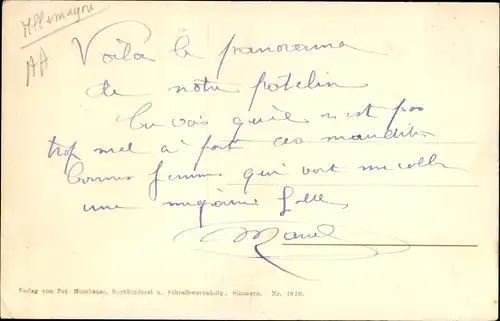 Allemagne
AA
Voilà le panorama
de notre patelin
tu vois qu'il n'est pas
trop mal à part ces maudites
bonnes femmes qui vont me coller
une migraine folle
Marcel
Verlag von Ped. Musshauer, Buchbinderei u. Schreibwarenhdlg., Simmern. Nr. 1010.